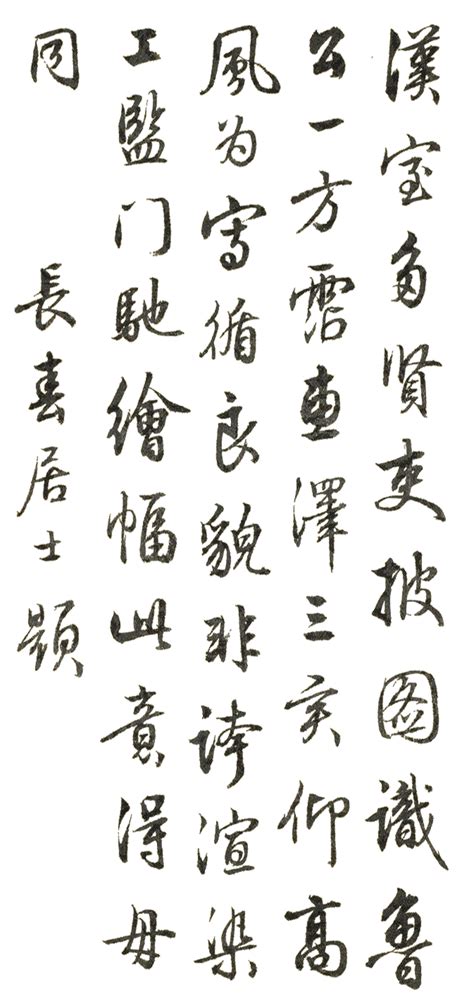 漢室多賢吏披圖識魯
公一方霑惠澤三異仰高
風为寫循良貌非誇渲染
工監门馳繪幅此意得毋
同 長春居士題